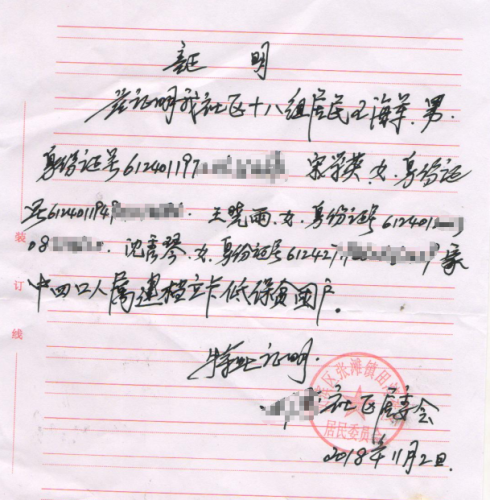 证 明
兹证明我社区十八组居民王海军、男、
身份证号612401197 宋学英、女、身份证
号612401194 、王晓雨、女、身份证号612401
08 、沈秀琴、女、身份证号612427 家
中四口人属建档立卡低保贫困户。
特此证明.
社区居委会
2018年11月2日.
装
订
线
区张滩镇田
居民委员会